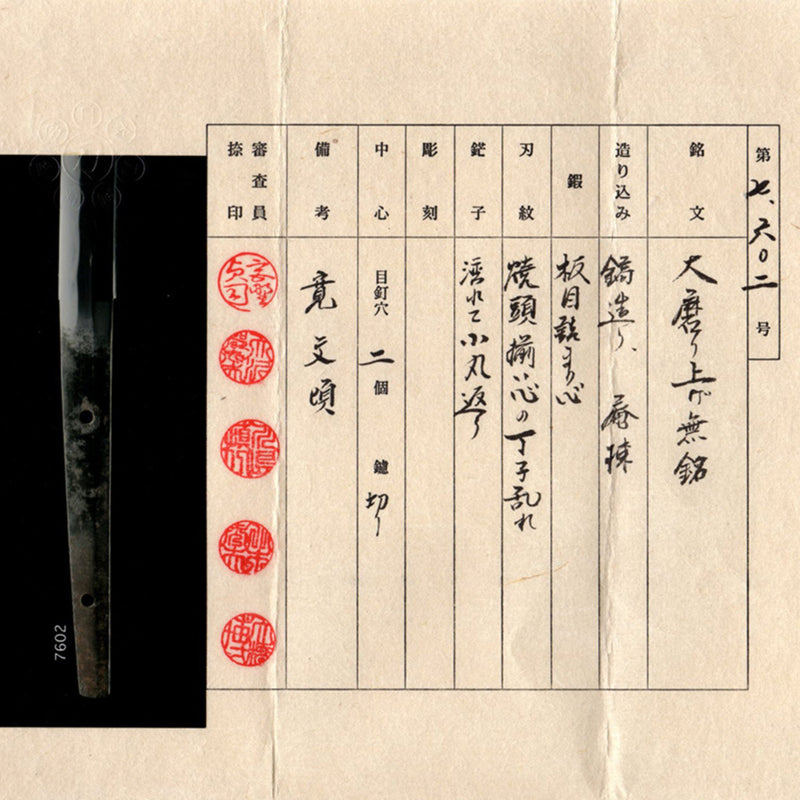 第七、六〇二号
銘文 大磨り上げ無銘
造り込み 鎬造り、庵棟
鍜 板目詰まり心
刃紋 焼頭揃い心の丁子乱れ
鋩子 湾れて小丸返り
彫刻
中心 目釘穴 二個 鑢 切り
備考 寛文頃
審査員捺印
7602